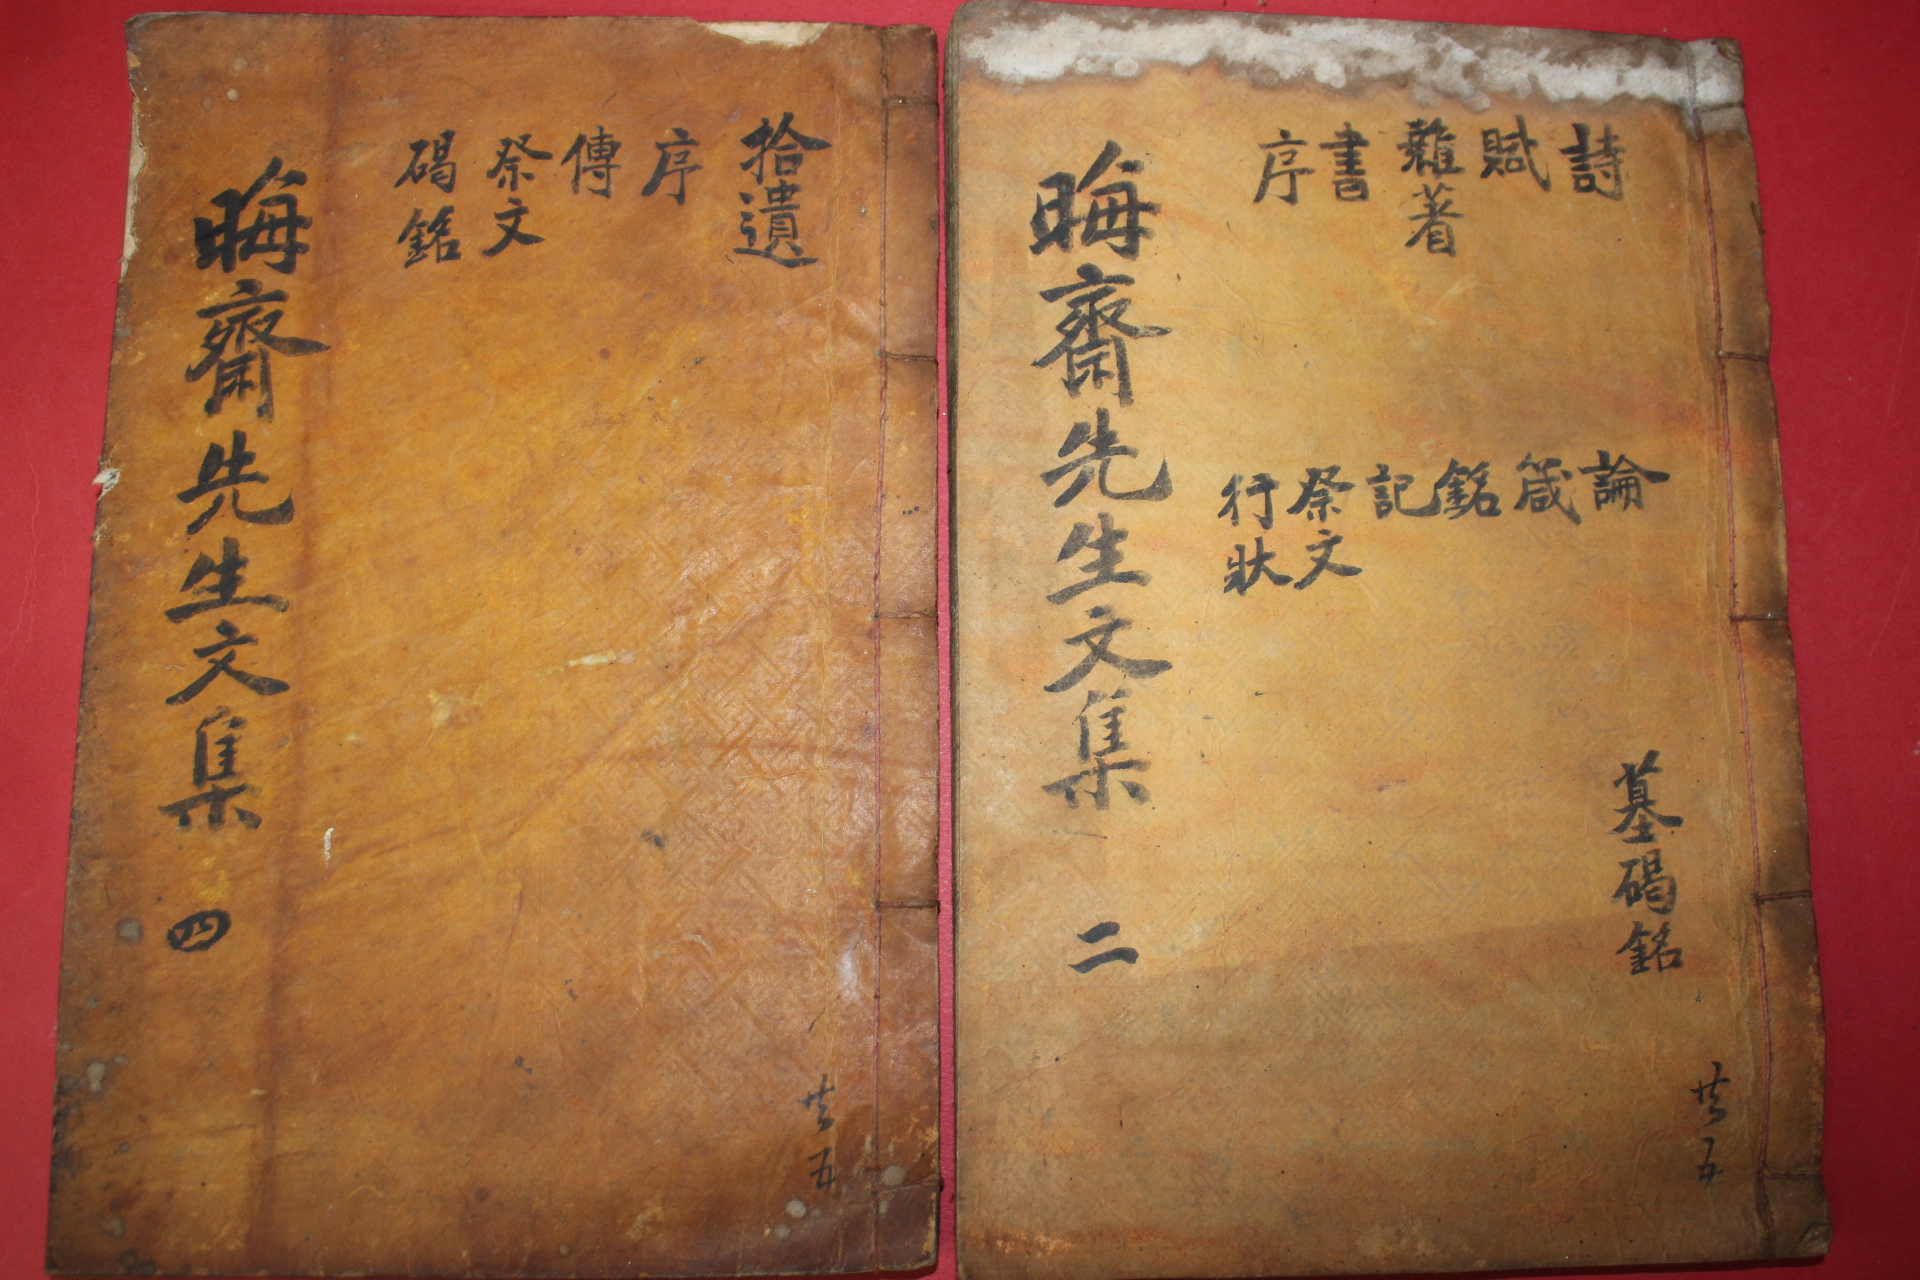 詩
賦
雜著
書
序
論
箴
銘
記
祭文
行狀
墓碣銘
共五
晦齋先生文集 二
拾遺
序
傳
祭文
碣銘
共五
晦齋先生文集 四